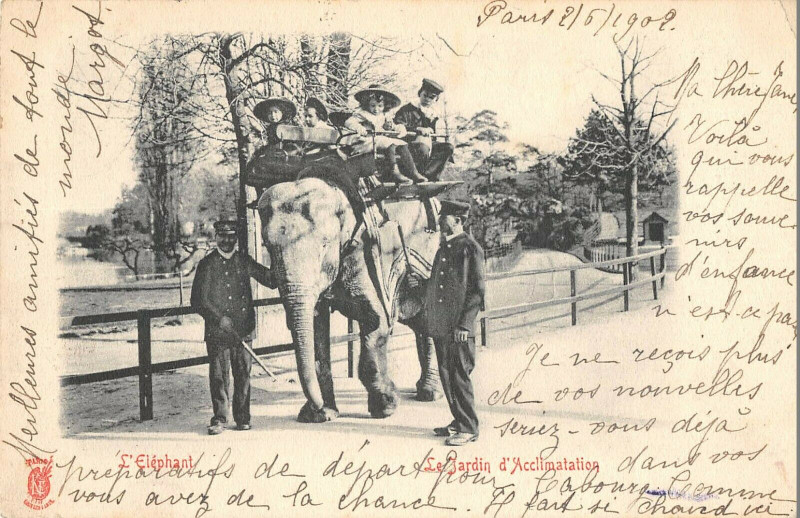 Paris 2/6/1902.
Ma chère Jane,
Voilà
qui vous
rappelle
vos souve
nirs
d'enfance
n'est-ce pas
Je ne reçois plus
de vos nouvelles
seriez-vous déjà
dans vos
préparatifs de départ pour Cabourg. Comme
vous avez de la chance. Il fait si chaud ici.
Meilleures amitiés de tout le
monde
Margot
L'Eléphant
Le Jardin d'Acclimatation